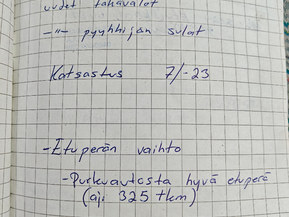 uudet takavalot
-"- pyyhkijän sulat
Katsastus 7/-23
-Etuperän vaihto
-Purkuautosta hyvä etuperä
(aji 325 tkm)